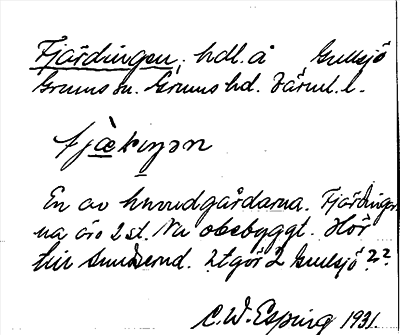 Fjärdingen, hdl. å Gullsjö
Grums sn. Grums hd. Värml. l.
En av huvudgårdarna. Fjärdingar-
na äro 2 st. Nu obebyggt. Hör
till Utgör 2 Gullsjö 2²
C.W. Esping 1931.